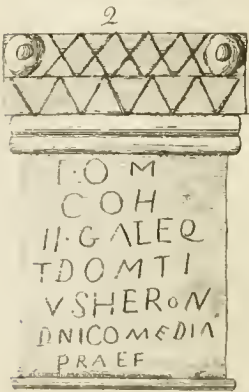 2
I·O M
COH
II·GALEQ
TDOMTI
VSHERON
DNICOMEDIA
PRAEF